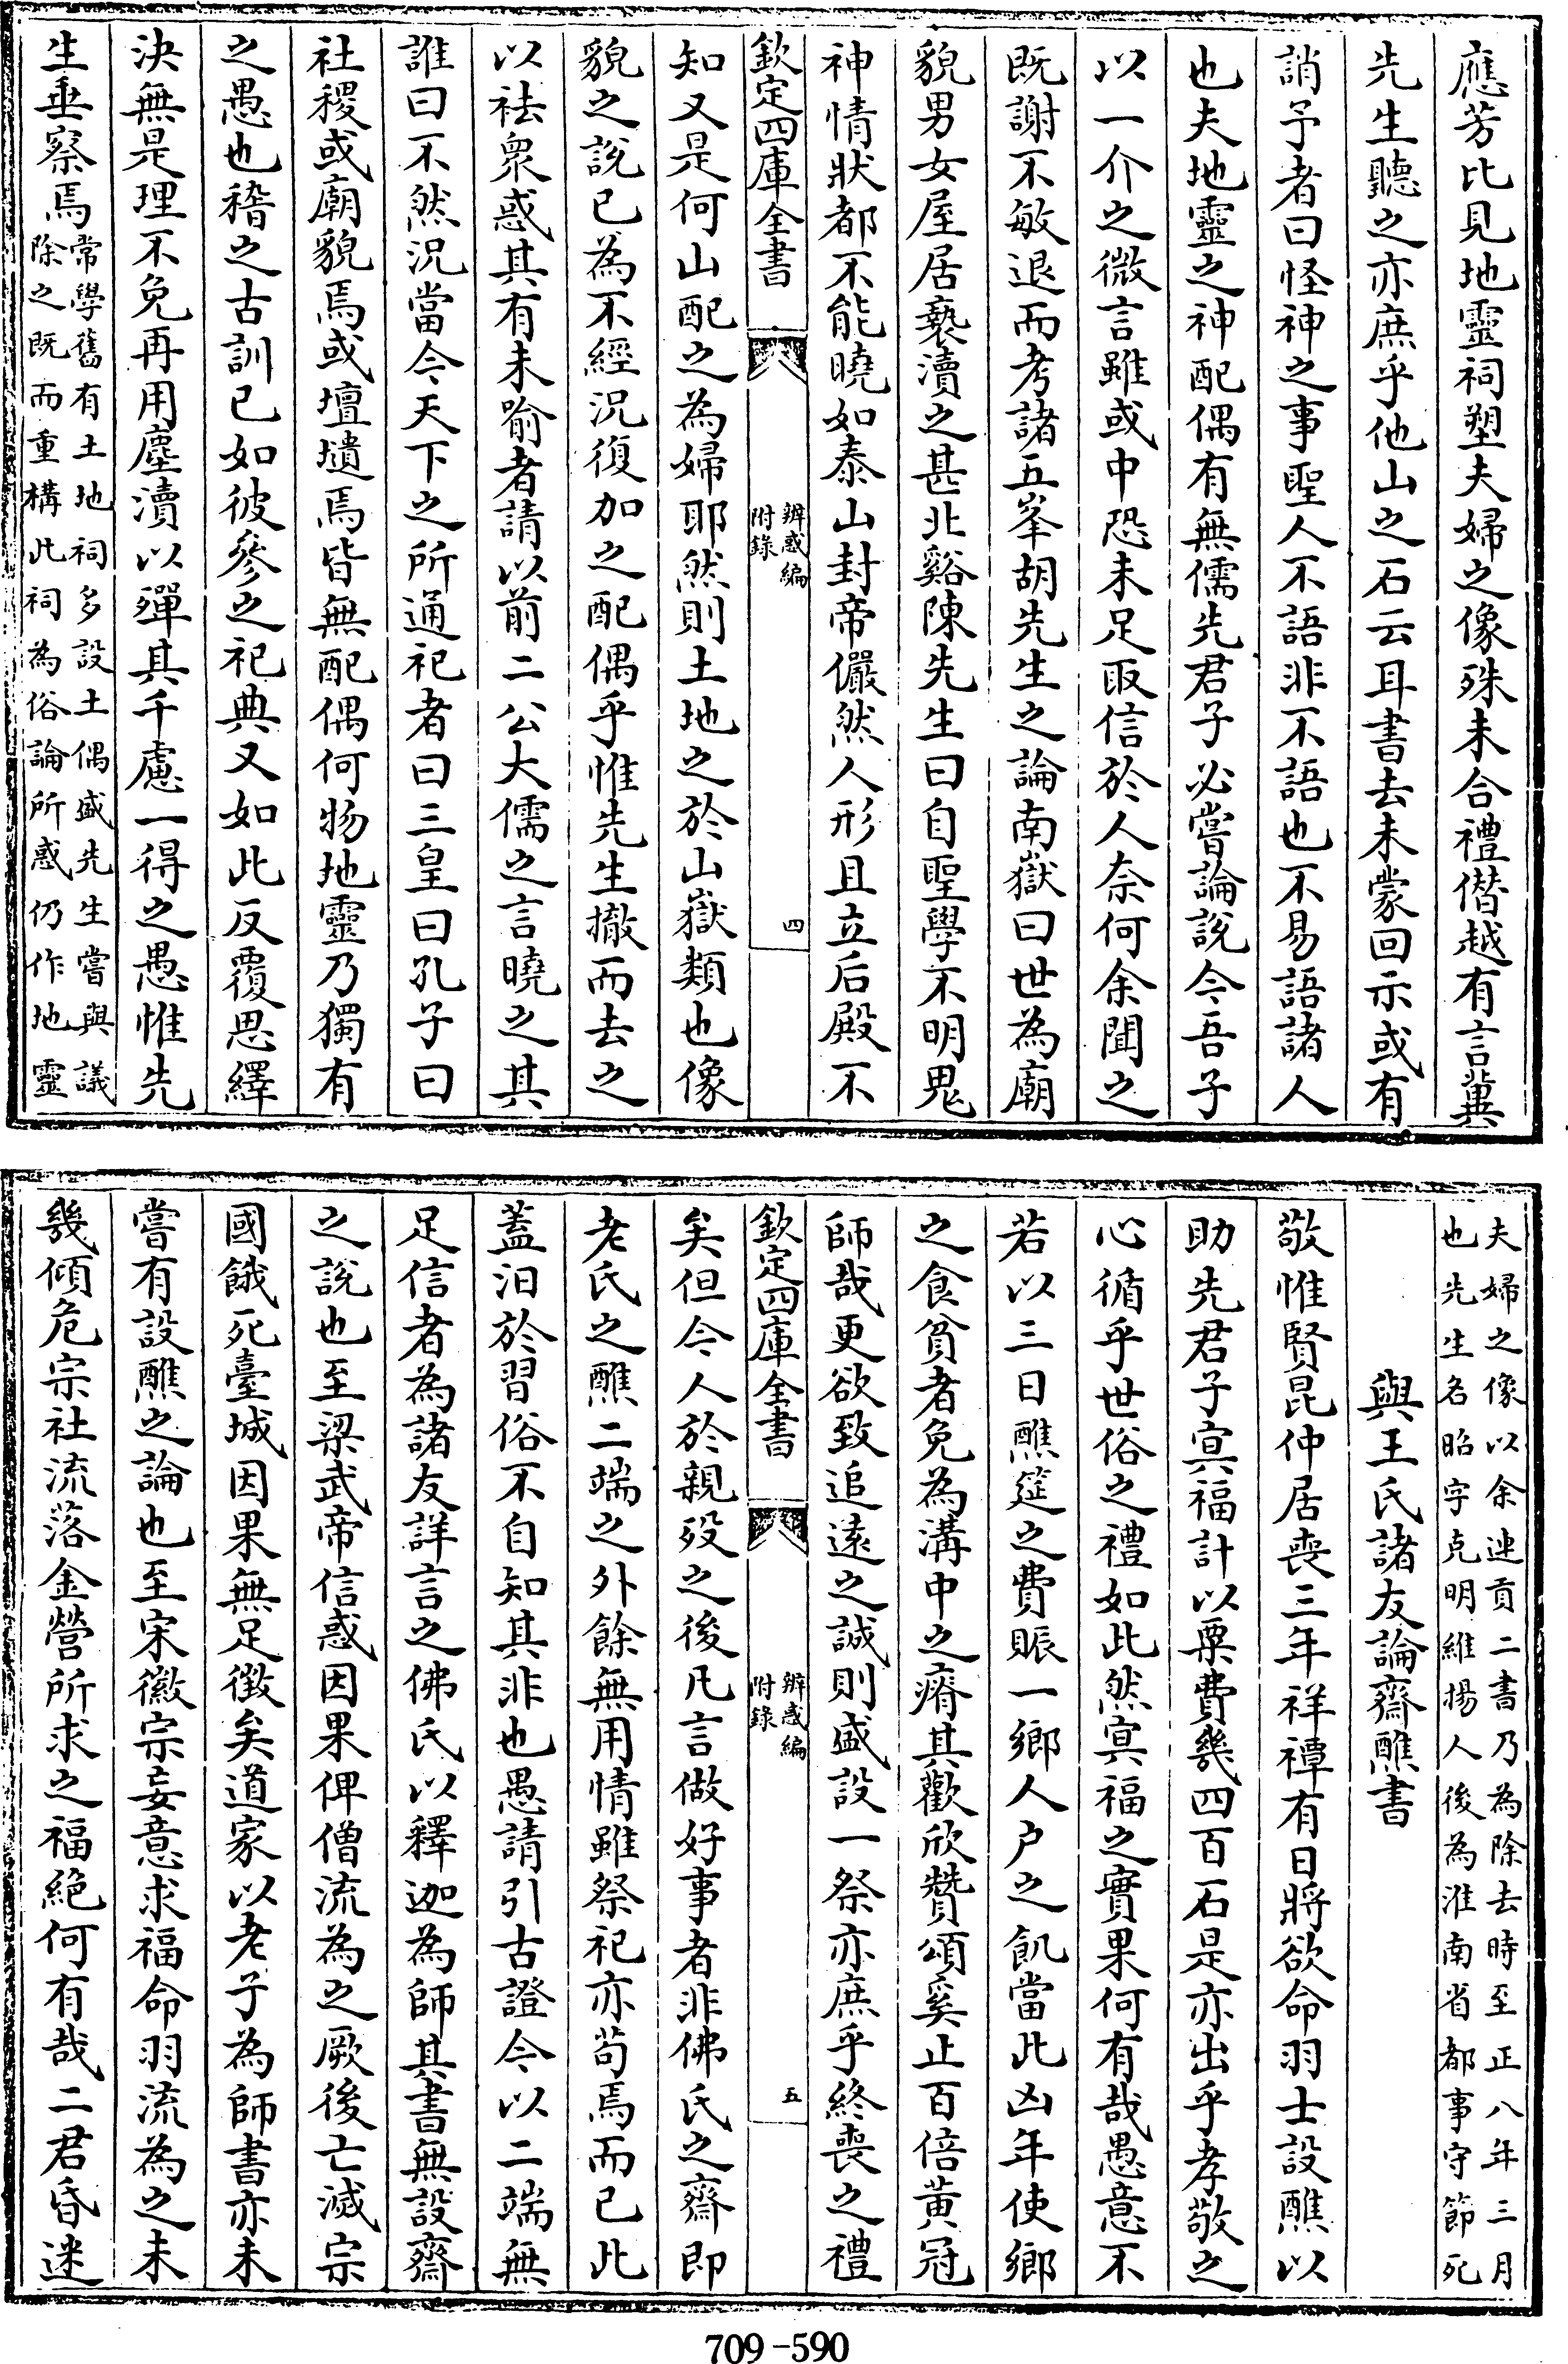 應芳比見地靈祠塑夫婦之像殊未合禮僭越有言冀
先生聽之亦庶乎他山之石云耳書去未蒙回示或有
誚予者曰怪神之事聖人不語非不語也不易語諸人
也夫地靈之神配偶有無儒先君子必嘗論說今吾子
以一介之微言雖或中恐未足取信於人奈何余聞之
既謝不敏退而考諸五峯胡先生之論南嶽曰世為廟
貌男女屋居褻瀆之甚北谿陳先生曰自聖學不明鬼
神情狀都不能曉如泰山封帝儼然人形且立后殿不
欽定四庫全書
辨惑編
附錄
四
知又是何山配之為婦耶然則土地之於山嶽類也像
貌之說已為不經況復加之配偶乎惟先生撤而去之
以袪衆惑其有未喻者請以前二公大儒之言曉之其
誰曰不然況當今天下之所通祀者曰三皇曰孔子曰
社稷或廟貌焉或壇壝焉皆無配偶何物地靈乃獨有
之愚也稽之古訓已如彼參之祀典又如此反覆思繹
決無是理不免再用塵瀆以殫其千慮一得之愚惟先
生垂察焉
常學舊有土地祠多設土偶盛先生嘗與議
除之既而重構此祠為俗論所惑仍作地靈
夫婦之像以余連貢二書乃為除去時至正八年三月
也先生名昭字克明維揚人後為淮南省都事守節死
與王氏諸友論齋醮書
敬惟賢昆仲居喪三年祥禫有日將欲命羽士設醮以
助先君子㝠福計以粟費幾四百石是亦出乎孝敬之
心循乎世俗之禮如此然㝠福之實果何有哉愚意不
若以三日醮筵之費賑一鄉人户之飢當此凶年使鄉
之食貧者免為溝中之瘠其歡欣贊頌奚止百倍黃冠
師哉更欲致追遠之誠則盛設一祭亦庶乎終喪之禮
欽定四庫全書
辨惑編
附錄
五
矣但今人於親歿之後凡言做好事者非佛氏之齋即
老氏之醮二端之外餘無用情雖祭祀亦苟焉而已此
蓋汨於習俗不自知其非也愚請引古證今以二端無
足信者為諸友詳言之佛氏以釋迦為師其書無設齋
之說也至梁武帝信惑因果俾僧流為之厥後亡滅宗
國餓死臺城因果無足徵矣道家以老子為師書亦未
嘗有設醮之論也至宋徽宗妄意求福命羽流為之未
幾傾危宗社流落金營所求之福絕何有哉二君昏迷
709-590